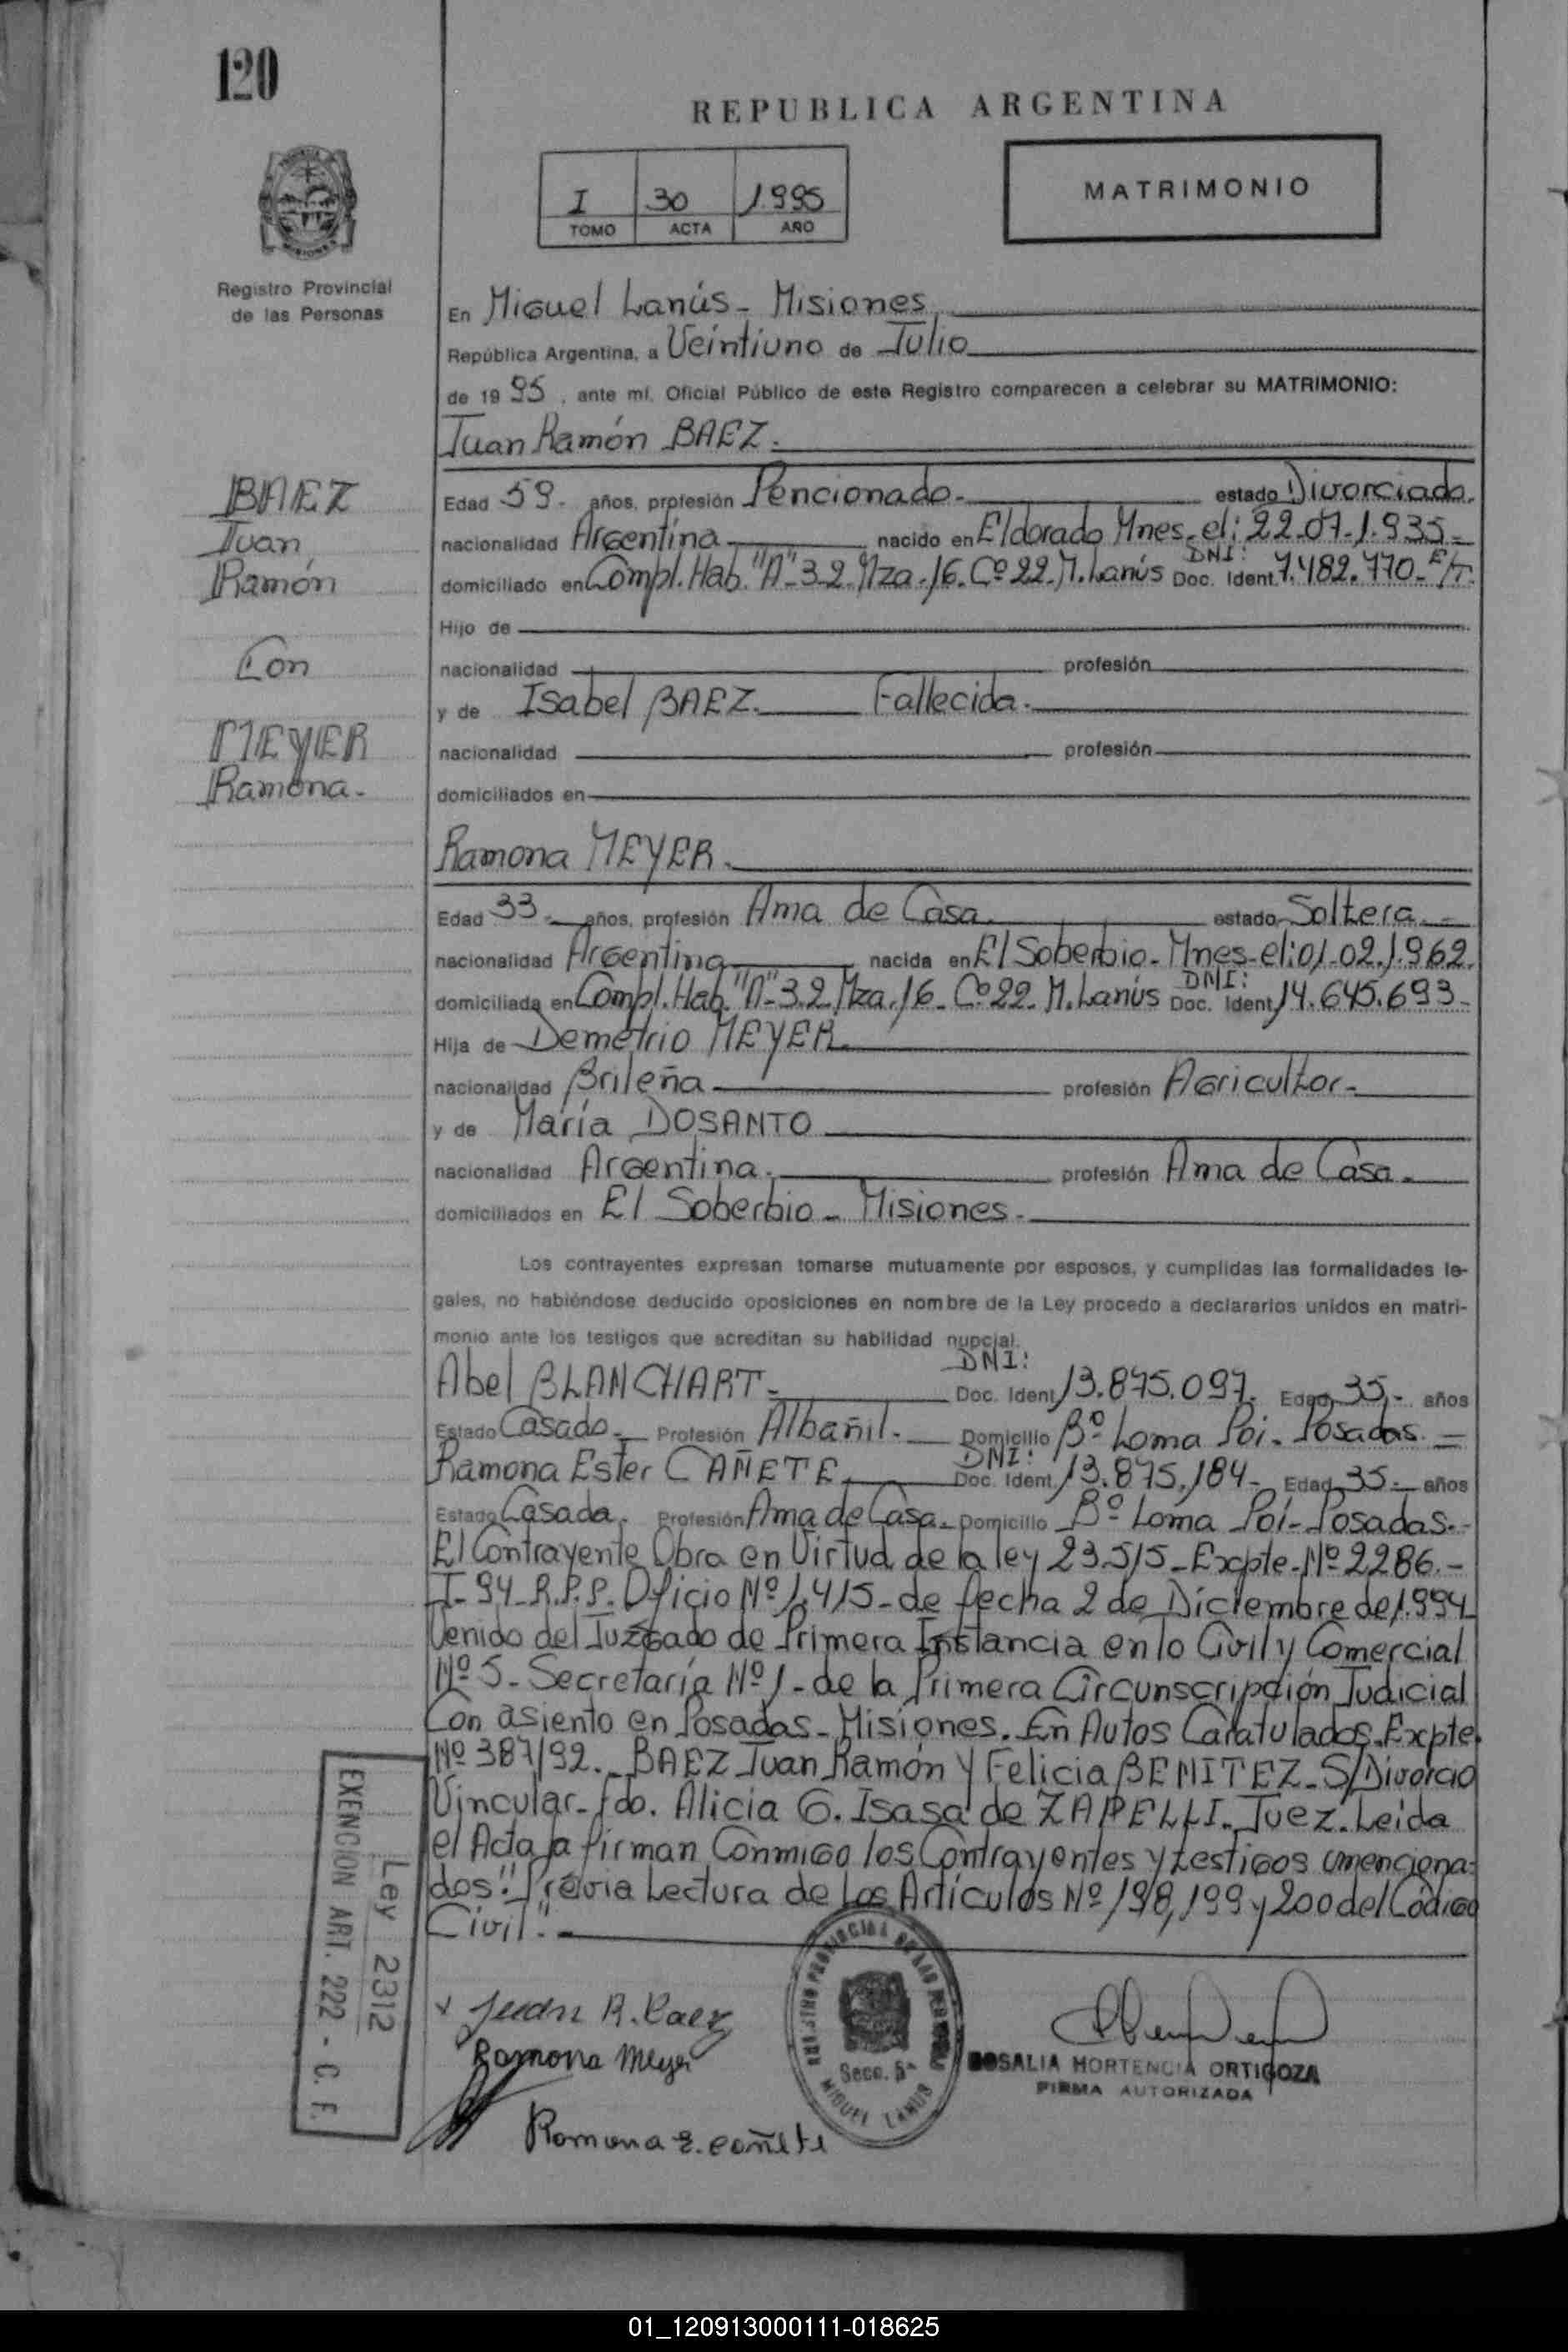 120
REPUBLICA ARGENTINA
I 30 1.995
TOMO ACTA AÑO
MATRIMONIO
Registro Provincial
de las Personas
En Miguel Lanús - Misiones
República Argentina, a Veintiuno de Julio
de 19 95, ante mí, Oficial Público de este Registro comparecen a celebrar su MATRIMONIO:
Juan Ramón BAEZ.
BAEZ
Juan
Ramón
Con
MEYER
Ramona.
Edad 59. años, profesión Pencionado. estado Divorciado.
nacionalidad Argentina nacido en Eldorado Mnes. el: 22-07-1.935-
domiciliado en Compl. Hab. "A"-32 Mza. 16. Cº 22. M. Lanús DNI: Doc. Ident. 7.482.770- E/T.
Hijo de
nacionalidad profesión
y de Isabel BAEZ. Fallecida.
nacionalidad profesión
domiciliados en
Ramona MEYER.
Edad 33. años, profesión Ama de Casa. estado Soltera.-
nacionalidad Argentina nacida en El Soberbio. Mnes. el: 01-02.1.962.
domiciliada en Compl. Hab. "A"-32 Mza. 16. Cº 22. M. Lanús DNI: Doc. Ident. 14.645.693-
Hija de Demetrio MEYER.
nacionalidad Brileña profesión Agricultor-
y de María DOSANTO
nacionalidad Argentina. profesión Ama de Casa.
domiciliados en El Soberbio - Misiones.
Los contrayentes expresan tomarse mutuamente por esposos, y cumplidas las formalidades le-
gales, no habiéndose deducido oposiciones en nombre de la Ley procedo a declararlos unidos en matri-
monio ante los testigos que acreditan su habilidad nupcial.
Abel BLANCHART- DNI: Doc. Ident. 13.875.097. Edad 35.- años
Estado Casado. Profesión Albañil.- Domicilio Bº Loma Poi- Posadas.=
Ramona Ester CAÑETE. DNI: Doc. Ident. 13.875.184- Edad 35.- años
Estado Casada. Profesión Ama de Casa. Domicilio Bº Loma Poi- Posadas.-
El Contrayente Obra en Virtud de la ley 23.515- Excpte- Nº 2286.-
I- 94- R.P.P. Oficio Nº 1.415- de fecha 2 de Diciembre de 1.994-
Venido del Juzgado de Primera Instancia en lo Civil y Comercial
Nº 5- Secretaría Nº 1- de la Primera Circunscripción Judicial
Con asiento en Posadas- Misiones. En Autos Caratulados. Excpte.
Nº 387/92.- BAEZ Juan Ramón y Felicia BENITEZ- S/Divorcio
Vincular- fdo. Alicia G. Isasa de ZAPELLI. Juez. Leida
el Acta la firman Conmigo los Contrayentes y testigos menciona-
dos." Previa Lectura de Los Artículos Nº 198, 199 y 200 del Código
Civil".-
Ley 2312
EXENCION ART. 222 - C. F.
x Juan R. Baez
Ramona Meyer
Ramona E. Cañete
REGISTRO PROVINCIAL DE LAS PERSONAS
Secc. 5ª
MIGUEL LANUS
ROSALIA HORTENCIA ORTIGOZA
FIRMA AUTORIZADA
01_120913000111-018625